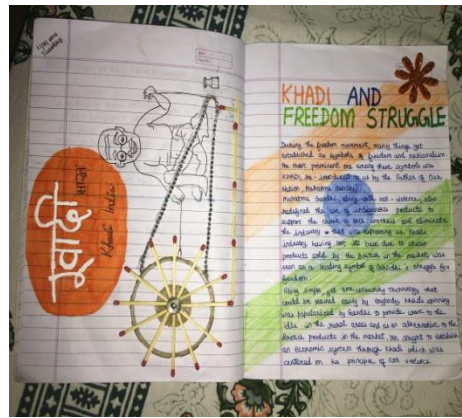 खादी
भारत
Khadi India
KHADI AND
FREEDOM STRUGGLE
During the freedom movement, many things got
established as symbols of freedom and nationalism.
The most prominent one among these symbols was
KHADI, as introduced to us by the Father of Our
Nation, Mahatma Gandhi.
Mahatma Gandhi, along with non-violence, also
redefined the use of indigenous products to
support the cause of our workers and eliminate
the industry that was exploiting us. Khadi
industry having lost its base due to cheaper
products sold by the British in the market, was
seen as a leading symbol of Gandhi's struggle for
freedom.
Using simple, yet time consuming technology that
could be learned easily by anybody, Khadi spinning
was popularized by Gandhi to provide work to the
idle in the rural areas and as an alternative to the
British products in the market. He sought to establish
an economic system through Khadi which was
centered on his principle of non violence